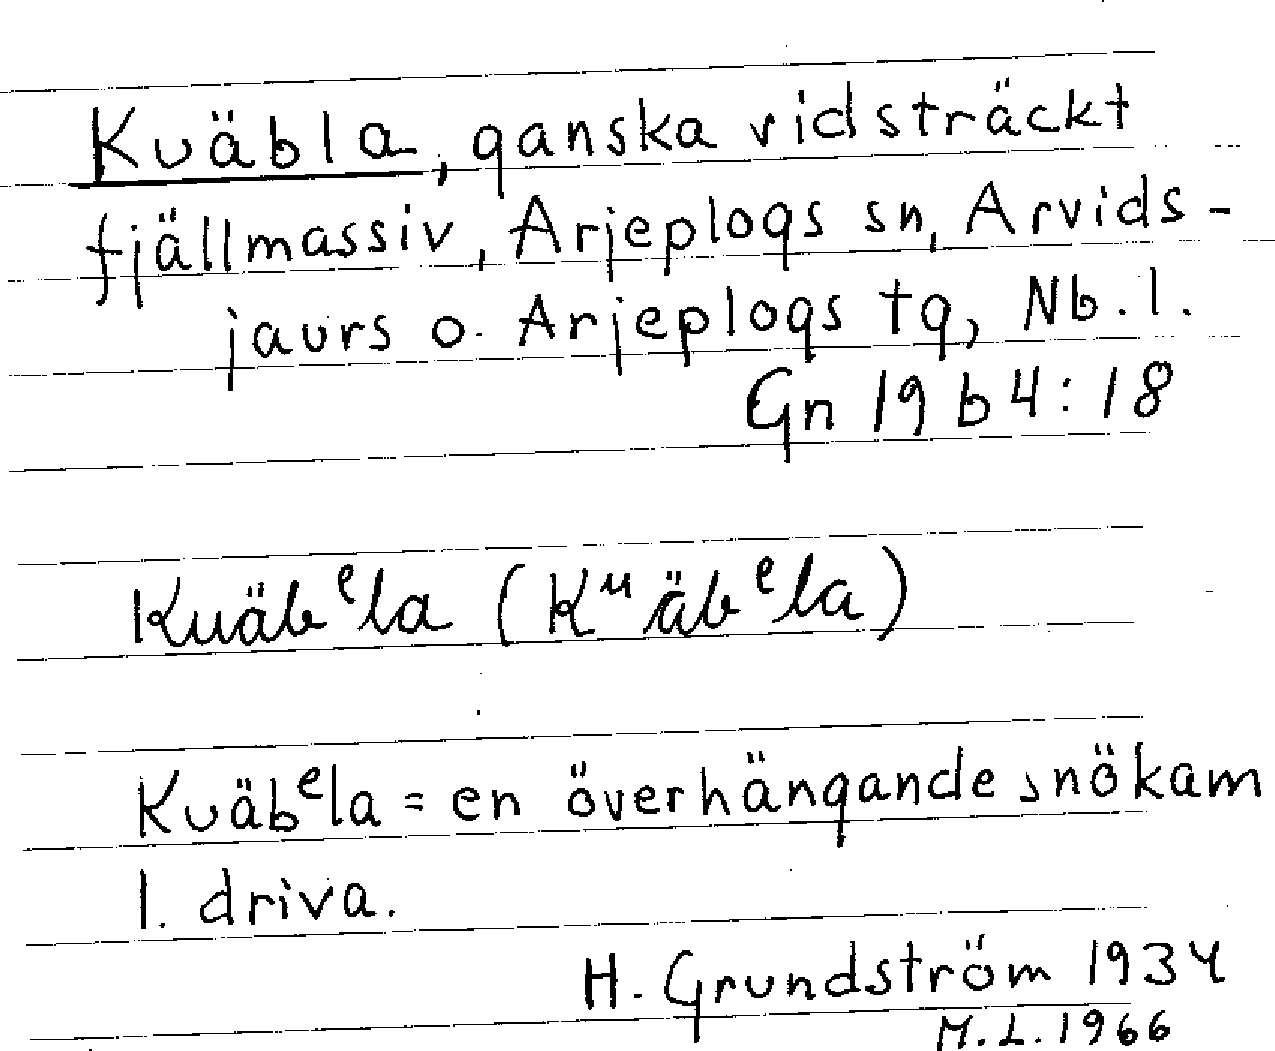 Kuäbla, ganska vidsträckt
fjällmassiv, Arjeplogs sn, Arvids-
jaurs o. Arjeplogs tg, Nb. l.
Gn 19 b4:18
Kuäbᵉla (Kᵘäbᵉla)
Kuäbᵉla = en överhängande snökam
l. driva.
H. Grundström 1934
M.L. 1966